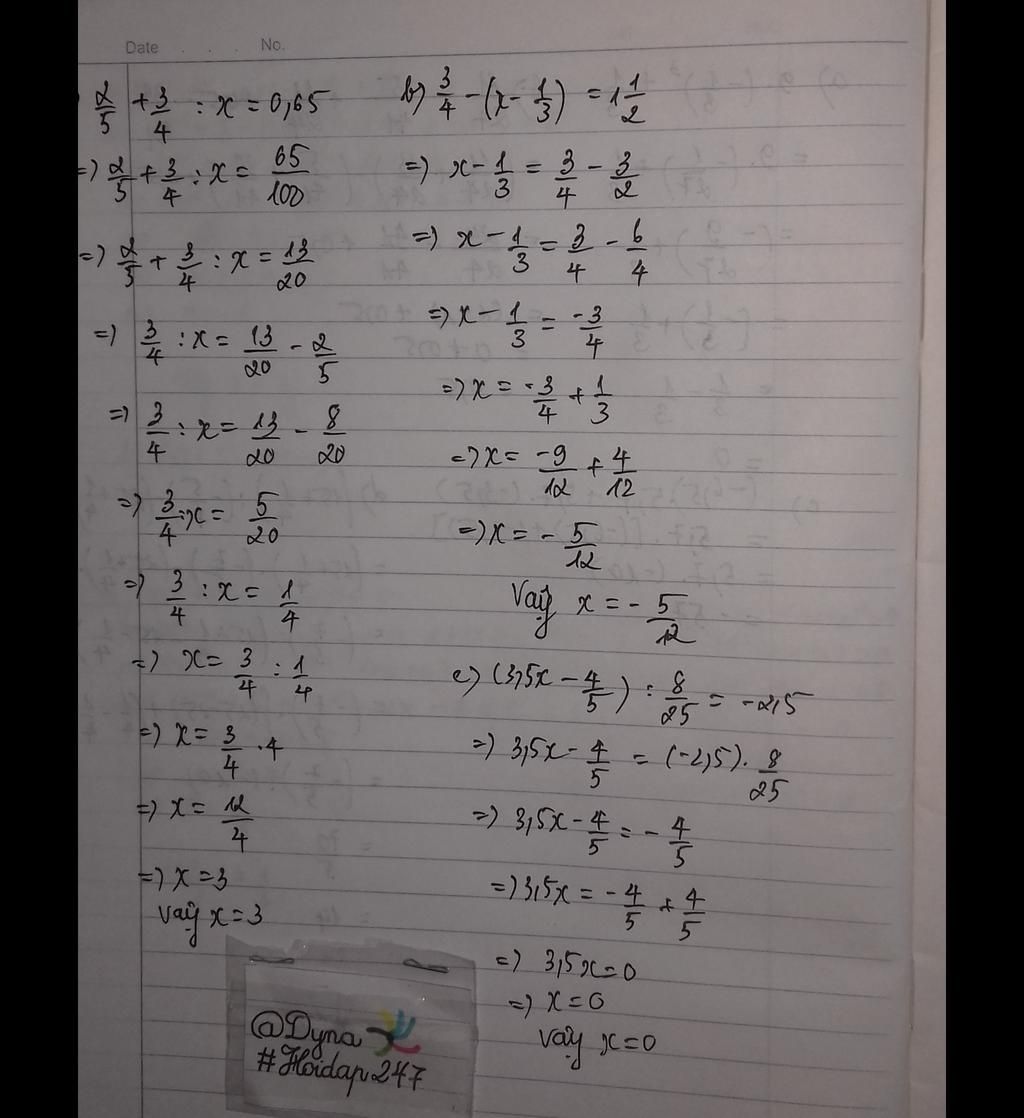 Date . . . No.
2/5 + 3/4 : x = 0,65
=) 2/5 + 3/4 : x = 65/100
=) 2/5 + 3/4 : x = 13/20
=) 3/4 : x = 13/20 - 2/5
=) 3/4 : x = 13/20 - 8/20
=) 3/4 : x = 5/20
=) 3/4 : x = 1/4
=) x = 3/4 : 1/4
=) x = 3/4 . 4
=) x = 12/4
=) x = 3
vậy x = 3
b) 3/4 - (x - 1/3) = 1 1/2
=) x - 1/3 = 3/4 - 3/2
=) x - 1/3 = 3/4 - 6/4
=) x - 1/3 = -3/4
=) x = -3/4 + 1/3
=) x = -9/12 + 4/12
=) x = - 5/12
Vậy x = - 5/12
c) (3,5x - 4/5) : 8/25 = -2,5
=) 3,5x - 4/5 = (-2,5) . 8/25
=) 3,5x - 4/5 = - 4/5
=) 3,5x = - 4/5 + 4/5
=) 3,5x = 0
=) x = 0
vậy x = 0
@Dyna
#Hoidap247